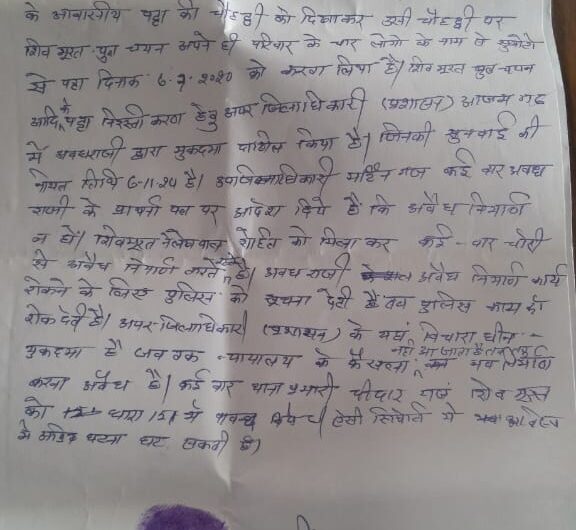 के आवासीय पट्टा की चौहद्दी को दिखाकर उसी चौहद्दी पर
शिव मूरत पुत्र चयन अपने ही परिवार के चार लोगो के नाम से
से पट्टा दिनांक 6.7.2020 को करवा लिया है। शिव मूरत पुत्र चयन
आदि के पट्टा निरस्ती करण हेतु अपर जिलाधिकारी (प्रशासन) आजमगढ़
में अवधराजी द्वारा मुकदमा दाखिल किया है। जिनकी सुनवाई की
नियत तिथि 6-11-24 है। उपजिलाधिकारी मार्टिनगंज कई बार अवध
राजी के प्रार्थना पत्र पर आदेश दिये है कि अवैध निर्माण
न हो। शिवमूरत लेखपाल रोहित को मिला कर कई-बार चोरी
से अवैध निर्माण करते रहते है। अवध राजी अवैध निर्माण कार्य
रोकने के लिए पुलिस को सूचना देती है तब पुलिस काम को
रोक देती है। अपर जिलाधिकारी (प्रशासन) के यहां विचाराधीन
मुकदमा है जब तक न्यायालय के फैसला नही आ जाता है तब तक निर्माण
करना अवैध है। कई बार थाना प्रभारी दीदारगंज शिव मूरत
को धारा 151 में पाबन्द किये ऐसी स्थिति में
घटना घट सकती है।